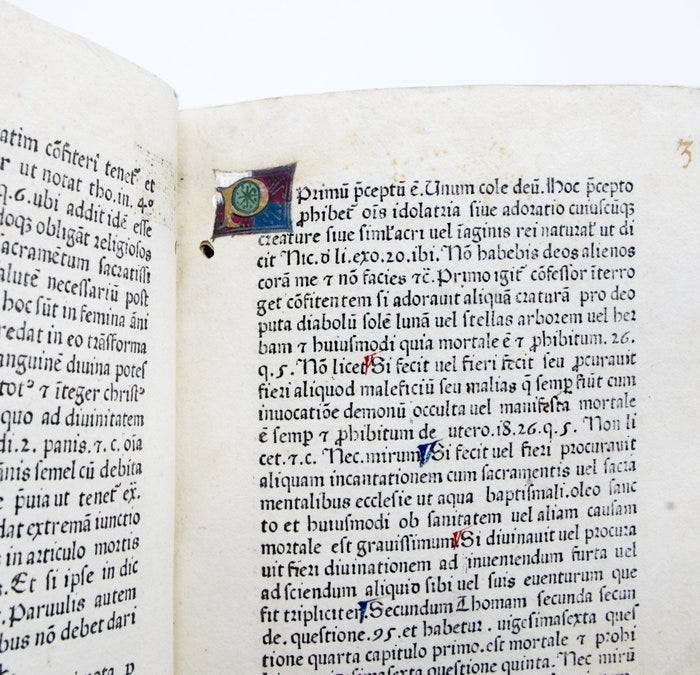 atim cōfiteri tenet᷑ et
r ut notat tho.in. 4º
q.6. ubi addit idē esse
doqꝫ obligāt religiosos
sacramētum sacratissi
alutē necessariū post
hoc sūt in femina āni
redat in eo trāsforma
anguinē divina potes
tot⁹ ⁊ īteger christ⁹
quo ad divinitatem
di.2. panis.⁊.c. oīa
ānis semel cū debita
e p̄uia ut tenet᷑ ex.
dat extremā iunctio
s in articulo mortis
s. Et si ipse in dic
. Paruulis autem
bus nō debet dari
3
Primū p̄ceptū ē. Unum cole deū. Hoc p̄cepto
ꝓhibet᷑ oīs idolatria siue adoratio cuiuscūqꝫ
creature siue siml'acri uel īaginis rei naturał ut di
cit Nic. d li. exo.20. ibi. Nō habebis deos alienos
corā me ⁊ nō facies ⁊c̄. Primo igit᷑ cōfessor īterro
get cōfitentem si adorauit aliquā craturā pro deo
puta diabolū solē lunā uel stellas arborem uel her
bam ⁊ huiusmodi quia mortale ē ⁊ ꝓhibitum. 26.
q.5. Nō licet Si fecit uel fieri fecit seu ꝓcurauit
fieri aliquod maleficiū seu malias q̄ semꝑ fiūt cum
inuocatiōe demonū occulta uel manifesta mortale
ē semꝑ ⁊ ꝓhibitum de utero.18.26.q.5. Non li
cet.⁊.c. Nec.mirum Si fecit uel fieri procurauit
aliquam incantationem cum sacramentis uel sacra
mentalibus ecclesie ut aqua baptismali.oleo sanc
to et huiusmodi ob sanitatem uel aliam causam
mortale est grauissimum Si diuinauit uel procura
uit fieri diuinationem ad inueniendum furta uel
ad sciendum aliquid sibi uel suis euenturum que
fit tripliciter Secundum Thomam secunda secun
de. questione.95.et habetur. uigesimasexta ques
tione quarta capitulo primo.est mortale ⁊ prohi
simasexta questione quinta. Nec mirū